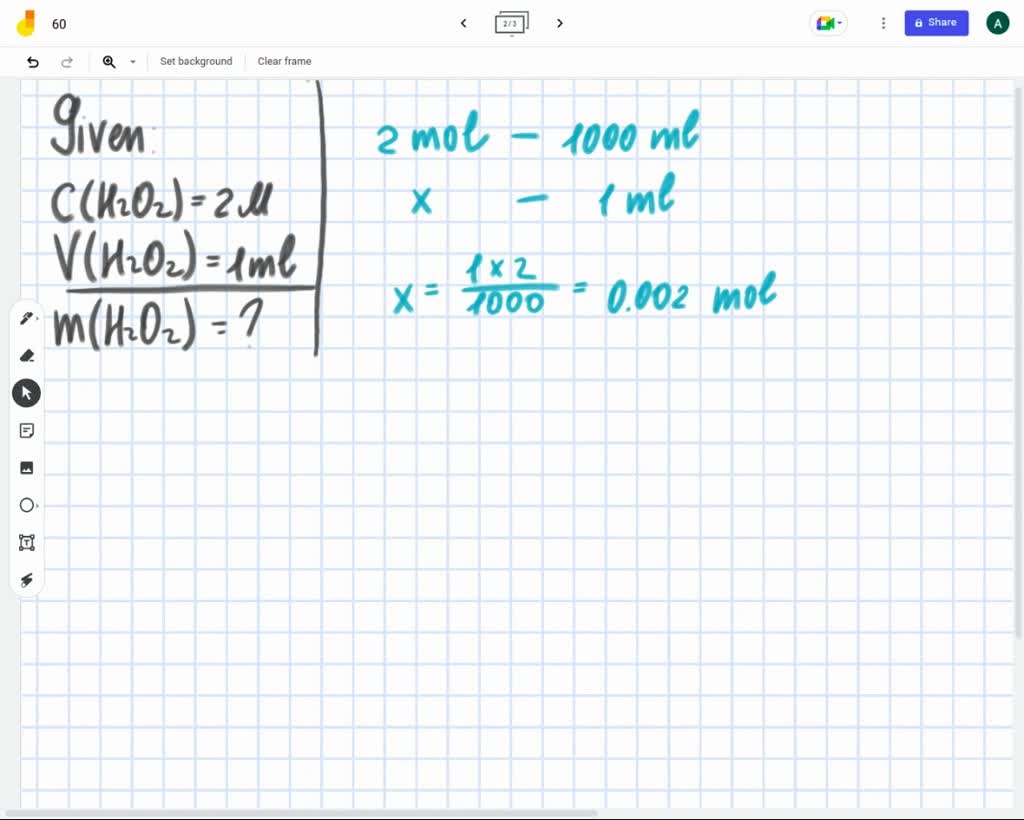 60
2 / 3
Share
A
Set background
Clear frame
Given:
C(H₂O₂) = 2 M
V(H₂O₂) = 1 ml
m(H₂O₂) = ?
2 mol – 1000 ml
x – 1 ml
x = 1 x 2 / 1000 = 0.002 mol